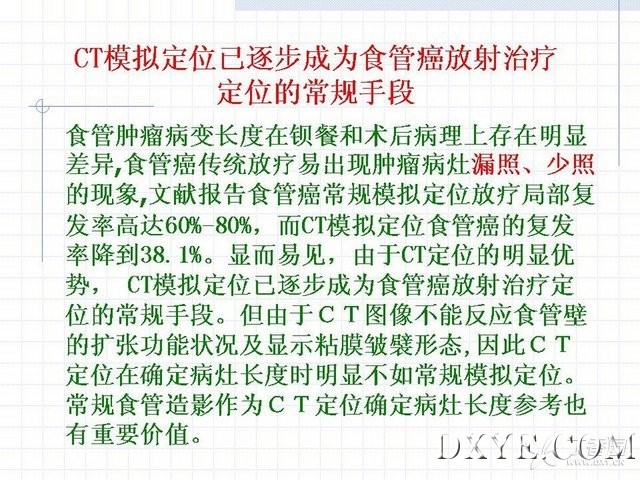 CT模拟定位已逐步成为食管癌放射治疗
定位的常规手段
食管肿瘤病变长度在钡餐和术后病理上存在明显
差异,食管癌传统放疗易出现肿瘤病灶漏照、少照
的现象,文献报告食管癌常规模拟定位放疗局部复
发率高达60%-80%，而CT模拟定位食管癌的复发
率降到38.1%。显而易见，由于CT定位的明显优
势， CT模拟定位已逐步成为食管癌放射治疗定
位的常规手段。但由于ＣＴ图像不能反应食管壁
的扩张功能状况及显示粘膜皱襞形态,因此ＣＴ
定位在确定病灶长度时明显不如常规模拟定位。
常规食管造影作为ＣＴ定位确定病灶长度参考也
有重要价值。
DXYE.COM
WWW.DXY.CN